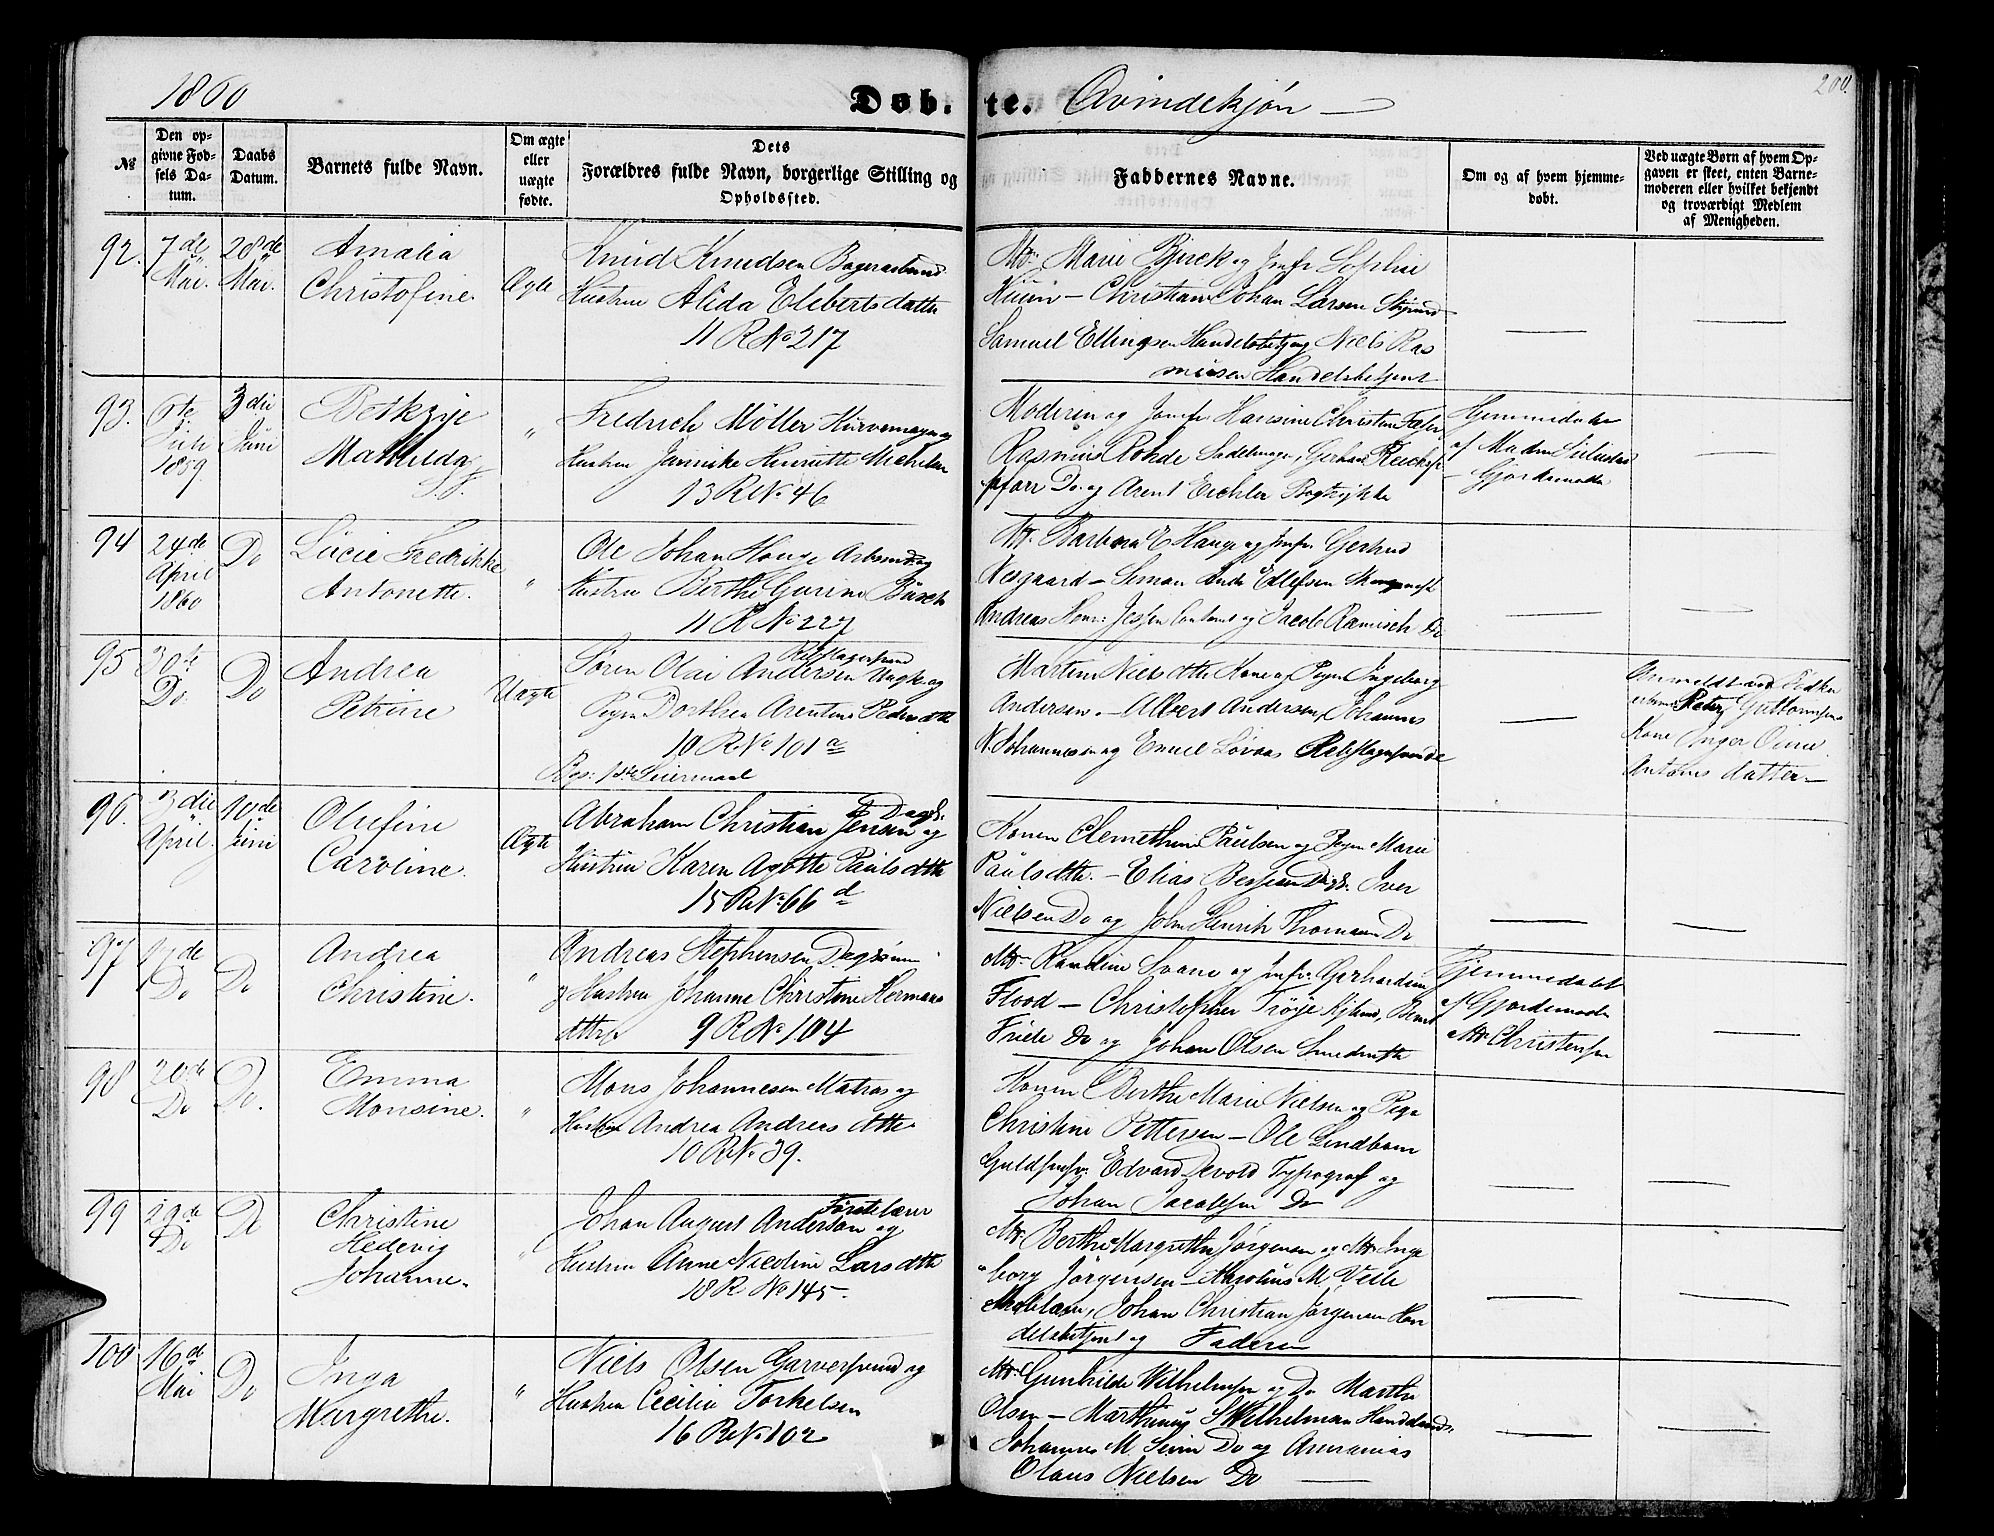 1860
Døb-
te.
Qvindekjøn
200.
№
Den op-
givne Fød-
sels Da-
tum.
Daabs
Datum.
Barnets fulde Navn.
Om ægte
eller
uægte
fødte.
Dets
Forældres fulde Navn, borgerlige Stilling og
Opholdssted.
Faddernes Navne.
Om og af hvem hjemme-
døbt.
Ved uægte Børn af hvem Op-
gaven er skeet, enten Barne-
moderen eller hvilket bekjendt
og troværdigt Medlem
af Menigheden.
92.
7de
Mai.
20de
Mai.
Amalia
Christofine
Ægte
Knud Knudsen
Hustru Alida Elebertsdatter
11 R No 217
Md. Marie Bjrck og Jomfr Sophie
Christian Johan Larsen
Samuel Ellingsen Handelsbetj og Niels Ras
musen Handelsbetjent
93.
6te
Juli
1859.
3die
Juni
Betkzye
Mathilda
"
Fredrich Møller Kurvemager og
Hustru Jannike Henriette Michelsen
13 R No 46
Moderen og Jomfr Hansine Christine
Rasmus Rohde Sadelmager, Gerhard Reichs
pfarr Do og Arent Eichler Bogtrykker
Hjemmedøbt
af Madm
Gjordemoder
94
24de
April
1860
Do
Lucie Fredrikke
Antonette.
"
Ole Johan Houge Arbmd og
Hustru Berthe Gurine Busch
11 R No 227
Md. Barbara E Hauge og Jmfr. Gertrud
Nesgaard - Simon Andr Ellefsen
Andreas Jessen og Jacob Ramisch Do
95
30te
Do.
Do
Andrea
Petrine
Uægte
Rebslagersvend
Søren Olai Andersen Ungk og
Pigen Dorthea Arentine Pedersdtr
10 R No 101 a
Pgs: 1ste Leiermaal
Martin Nielsdtr Kone og Pigen Ingeborg
Andersen. - Albert Andersen, Johannes
N. Johannesen og Emil Løvaas Rebslagersvende
Anmeldt ved
Peter Guttormsens
Kone Inger Oline
Antonsdatter
96.
3die
April.
10de
Juni
Olufine
Caroline.
Ægte
Dagk.
Abraham Christian Jensen og
Hustru Karen Agotte Paulsdtr
15 R No 66 d
Konen Clemethine Paulsen og Pigen Marie
Paulsdtr. - Elias Dagk. Iver
Nielsen Do og John Henrik Thomasen Do
97
17de
Do
Do
Andrea
Christine.
"
Andreas Stephensen
og Hustru Johanne Christine Hermans
dttr 9 R No 104
Md Randine Svane og Jmfr. Gerhardine
Flood - Christopher Trøye
Friele Do og Johan Olsen
Hjemmedøbt
af Gjordemoder
Md Christensen
98
20de
Do
Do.
Emma
Monsine.
"
Mons Johannesen Matros og
Hustru Andrea Andreasdtr
10 R No 39.
Konen Berthe Marie Nielsen og Pige
Christine Pettersen - Ole Lindbom
Guldsmsv. Edvard Devold Typograf og
Johan Jacobsen Do
99
29de
Do
Do
Christine
Hedevig
Johanne.
"
Førstelærer
Johan August Anderson og
Hustru Anne Nicoline Larsdtr
18 R No 145.
Md. Berthe Margrethe Jørgensen og Md Inge
borg Jørgensen - M. Veile
Johan Christian Jørgensen Han
delsbetjent og Faderen
100
16de
Mai
Do
Inga
Margrethe.
"
Niels Olsen Garversvend og
Hustru Cecilia Torkelsen
16 R No 102
Md. Gunhilde Wilhelmsen og Do Marthe
Olsen - Marthinus S Wilhelmsen
Johannes M Sevin Do og Annanias
Olaus Nielsen Do